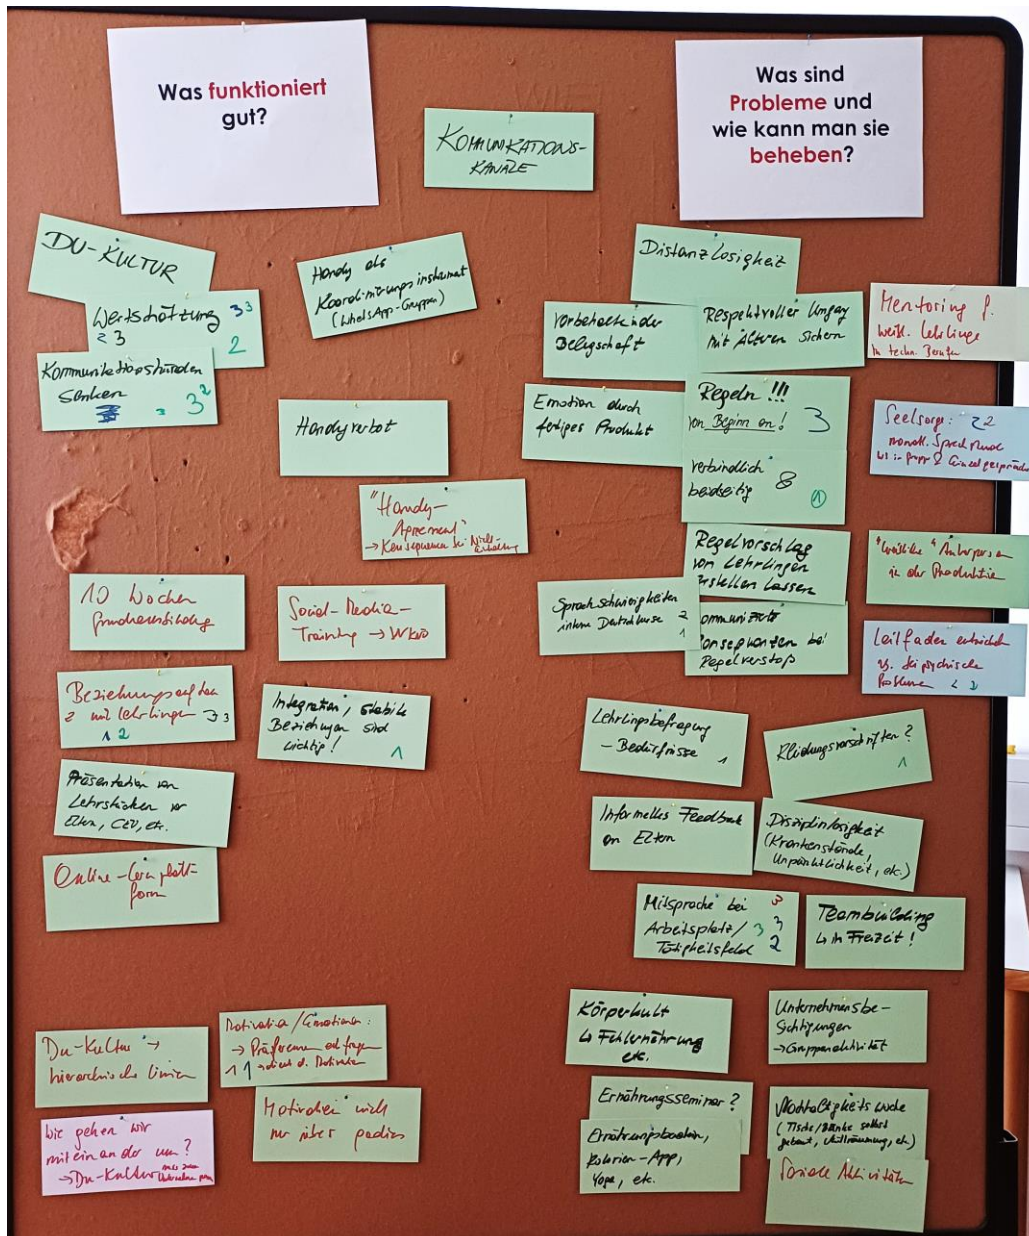 Was funktioniert
gut?
KOMMUNIKATIONS-
KANÄLE
Was sind
Probleme und
wie kann man sie
beheben?
DU-KULTUR
Wertschätzung 3 3
2 3
2
Kommunikationshürden
senken
3 2
Handy als
Koordinierungsinstrument
(WhatsApp-Gruppen)
Handyverbot
"Handy-
Agreement"
→ Konsequenzen bei Nicht-
einhaltung
10 Wochen
Grundausbildung
Social-Media-
Training → WKO
Beziehungsaufbau
2 mit Lehrlingen 3 3
1 2
Integration, stabile
Beziehungen sind
wichtig!
1
Präsentation von
Lehrstücken vor
Eltern, CEO, etc.
Online-Lernplatt-
form
Du-Kultur →
hierarchische Linien
Motivation/Emotionen:
→ Präferenzen abfragen
1 1 → dient d. Motivation
Wie gehen wir
miteinander um?
→ Du-Kultur muss zum
Unternehmen passen
Motivation nicht
nur über
Distanzlosigkeit
Vorbehalte in der
Belegschaft
Respektvoller Umgang
mit Älteren sichern
Mentoring f.
weibl. Lehrlinge
in techn. Berufen
Emotion durch
fertiges Produkt
Regeln !!!
von Beginn an! 3
Seelsorge: 2 2
monatl. Sprechstunde
Einzelgespräche
verbindlich
beidseitig 8
1
Regelvorschlag
von Lehrlingen
erstellen lassen
"weibliche" Ansprechperson
in der Produktion
Sprachschwierigkeiten
interne Deutschkurse 2
1
kommunizierte
Konsequenzen bei
Regelverstoß
Leitfaden entwickeln
bei psychische
Probleme 2 2
Lehrlingsbefragung
- Bedürfnisse 1
Kleidungsvorschriften?
1
Informelles Feedback
an Eltern
Disziplinlosigkeit
(Krankenstände,
Unpünktlichkeit, etc.)
Mitsprache bei 3
Arbeitsplatz/ 3 3
Tätigkeitsfeld 2
Teambuilding
↳ in Freizeit!
Körperkult
↳ Fehlernährung
etc.
Unternehmensbe-
sichtigungen
→ Gruppenaktivität
Ernährungsseminar?
Ernährungs
Kalorien-App,
Yoga, etc.
Nachhaltigkeitswoche
(Tische/Bänke selbst
gebaut, Müllräumung, etc.)
Soziale Aktivitäten